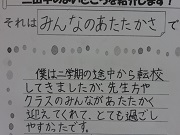 二田中のよいところを紹介します!
それは みんなのあたたかさ で
僕は二学期の途中から転校
してきましたが、先生方や
クラスのみんながあたたかく
迎えてくれて、とても過ごし
やすかったです。